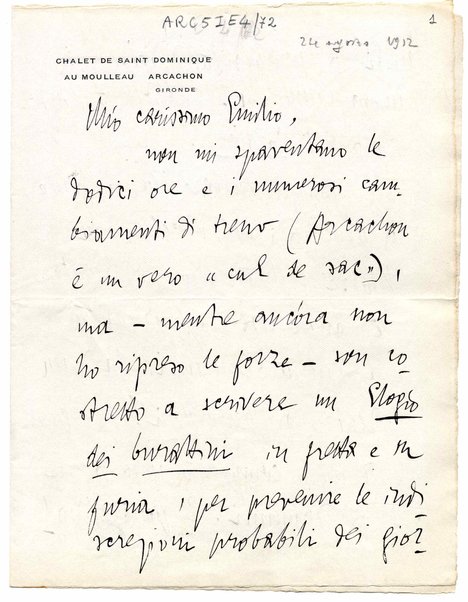 ARC5IE4/72
1
24 agosto 1912
CHALET DE SAINT DOMINIQUE
AU MOULLEAU ARCACHON
GIRONDE
Mio carissimo Emilio,
non mi spaventano le
dodici ore e i numerosi cam-
biamenti di treno (Arcachon
è un vero «cul de sac»),
ma – mentre ancóra non
ho ripreso le forze – son co
stretto a scrivere un Elogio
dei burattini in fretta e in
furia, per prevenire le indi
screzioni probabili dei gior